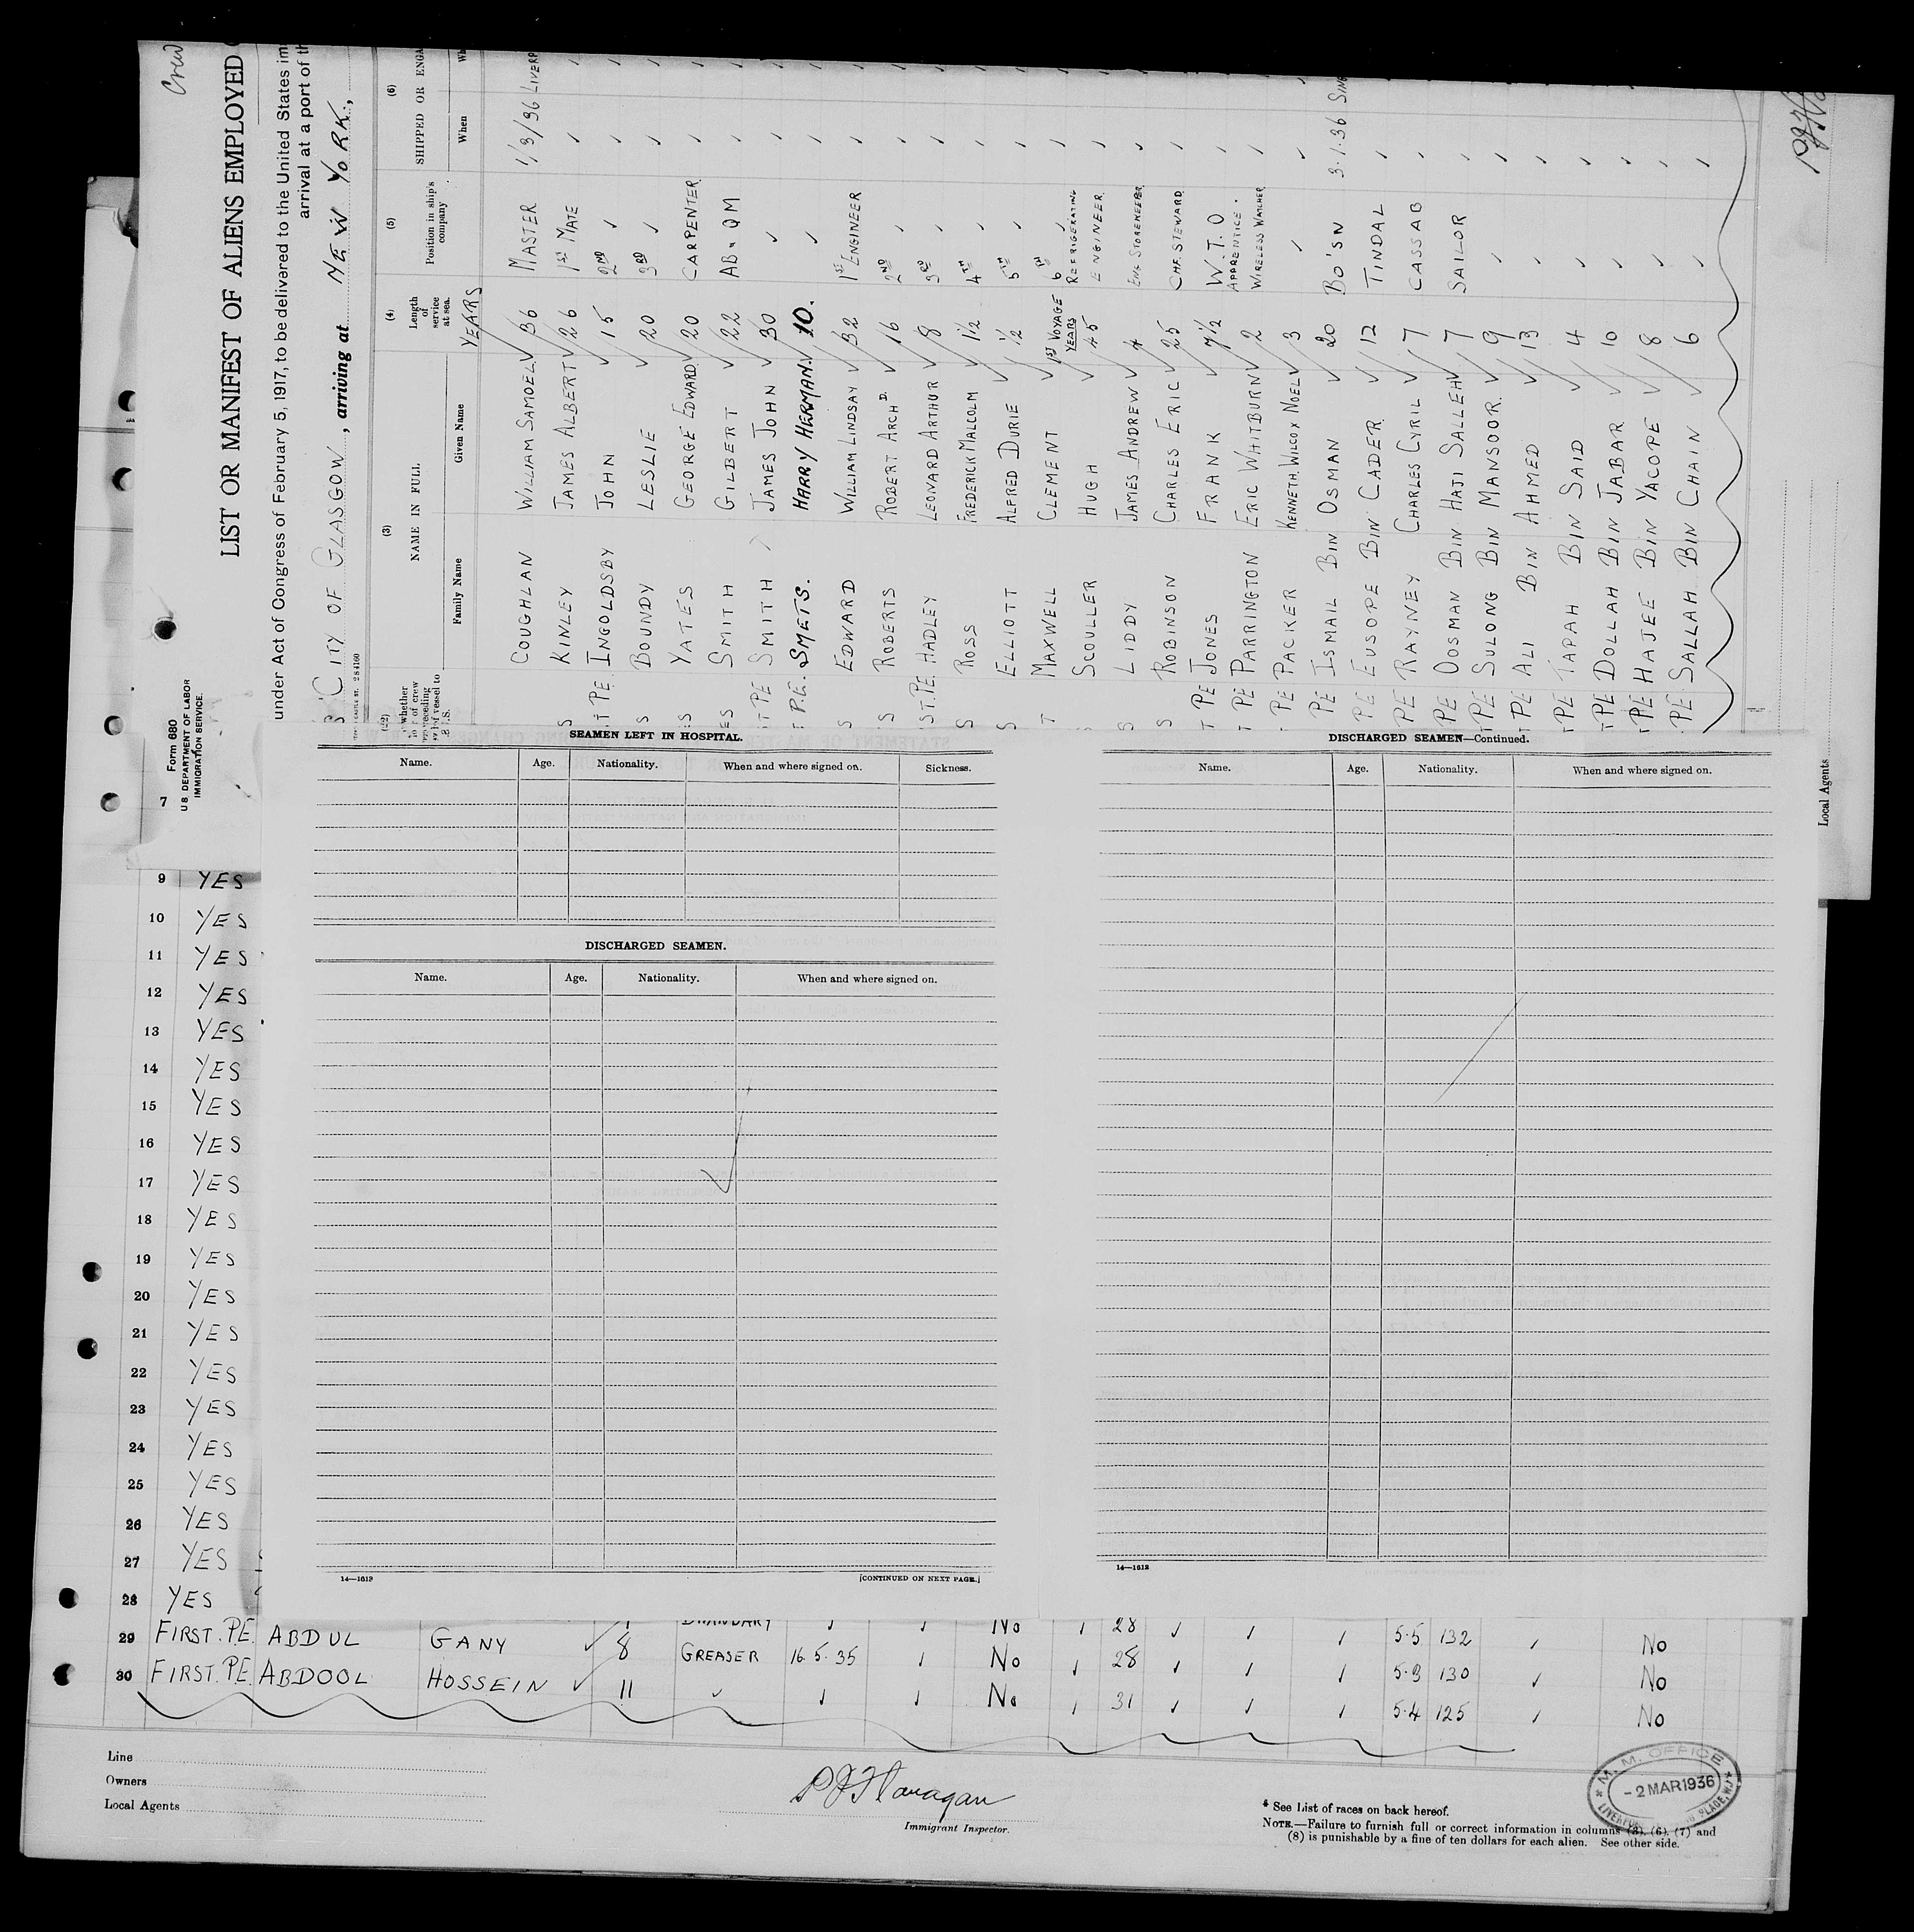 Crew
LIST OR MANIFEST OF ALIENS EMPLOYED
under Act of Congress of February 5, 1917, to be delivered to the United States
arrival at a port of
CITY OF GLASGOW, arriving at NEW YORK,
Form 680
U S DEPARTMENT OF LABOR
IMMIGRATION SERVICE.
(3) (4) (5) (6)
NAME IN FULL Length of service at sea. Position in ship's company SHIPPED OR
Family Name Given Name When
YEARS
COUGHLAN WILLIAM SAMOEL 36 MASTER 1/3/36
S KINLEY JAMES ALBERT 26 1ST MATE
T PE INGOLDSBY JOHN 15 2ND ✓
S BOUNDY LESLIE 20 3RD ✓
S YATES GEORGE EDWARD 20 CARPENTER
ES SMITH GILBERT 22 AB & QM
T PE SMITH JAMES JOHN 30 ✓
T P.E. SMETS. HARRY HERMAN. 10. ✓
S EDWARD WILLIAM LINDSAY 32 1ST ENGINEER
S ROBERTS ROBERT ARCHD 16 2ND ✓
ST. PE. HADLEY LEONARD ARTHUR 8 3RD ✓
S ROSS FREDERICK MALCOLM 1½ 4TH ✓
S ELLIOTT ALFRED DURIE ½ 5TH ✓
T MAXWELL CLEMENT 1ST VOYAGE 6TH ✓
S SCOULLER HUGH YEARS 45 REFRIGERATING ENGINEER
S LIDDY JAMES ANDREW 4 ENG STOREKEEPER
S ROBINSON CHARLES ERIC 25 CHF. STEWARD
T PE JONES FRANK 7½ W.T.O
T PE PARRINGTON ERIC WHITBURN 2 APPRENTICE. WIRELESS WATCHER
T PE PACKER KENNETH WILCOX NOEL 3 ✓
PE ISMAIL BIN OSMAN 20 BO'SN 3.1.36
PE EUSOPE BIN CADER 12 TINDAL
PE RAYNEY CHARLES CYRIL 7 CASSAB
PE OOSMAN BIN HAJI SALLEH 7 SAILOR
T PE SULONG BIN MANSOOR. 9 ✓
T PE ALI BIN AHMED 13 ✓
T PE TAPAH BIN SAID 4 ✓
T PE DOLLAH BIN JABAR 10 ✓
T PE HAJEE BIN YACOPE 8 ✓
PE SALLAH BIN CHAIN 6 ✓
Local Agents
SEAMEN LEFT IN HOSPITAL.
Name. Age. Nationality. When and where signed on. Sickness.
DISCHARGED SEAMEN.
Name. Age. Nationality. When and where signed on.
14—1613 [CONTINUED ON NEXT PAGE.]
DISCHARGED SEAMEN—Continued.
Name. Age. Nationality. When and where signed on.
14—1612
7
9 YES
10 YES
11 YES
12 YES
13 YES
14 YES
15 YES
16 YES
17 YES
18 YES
19 YES
20 YES
21 YES
22 YES
23 YES
24 YES
25 YES
26 YES
27 YES
28 YES
BHANDARY ✓ ✓ No ✓ 28 ✓ ✓ ✓ 5.5 132 ✓ No
29 FIRST. P.E. ABDUL GANY ✓ 8 GREASER 16.5.35 ✓ No ✓ 28 ✓ ✓ ✓ 5.3 130 ✓ No
30 FIRST. P.E. ABDOOL HOSSEIN ✓ 11 ✓ ✓ ✓ No ✓ 31 ✓ ✓ ✓ 5.4 125 ✓ No
Line
Owners
Local Agents
P J Flanagan
Immigrant Inspector.
* See List of races on back hereof.
NOTE.—Failure to furnish full or correct information in columns (3), (6), (7) and
(8) is punishable by a fine of ten dollars for each alien. See other side.
M. M. OFFICE
- 2 MAR 1936